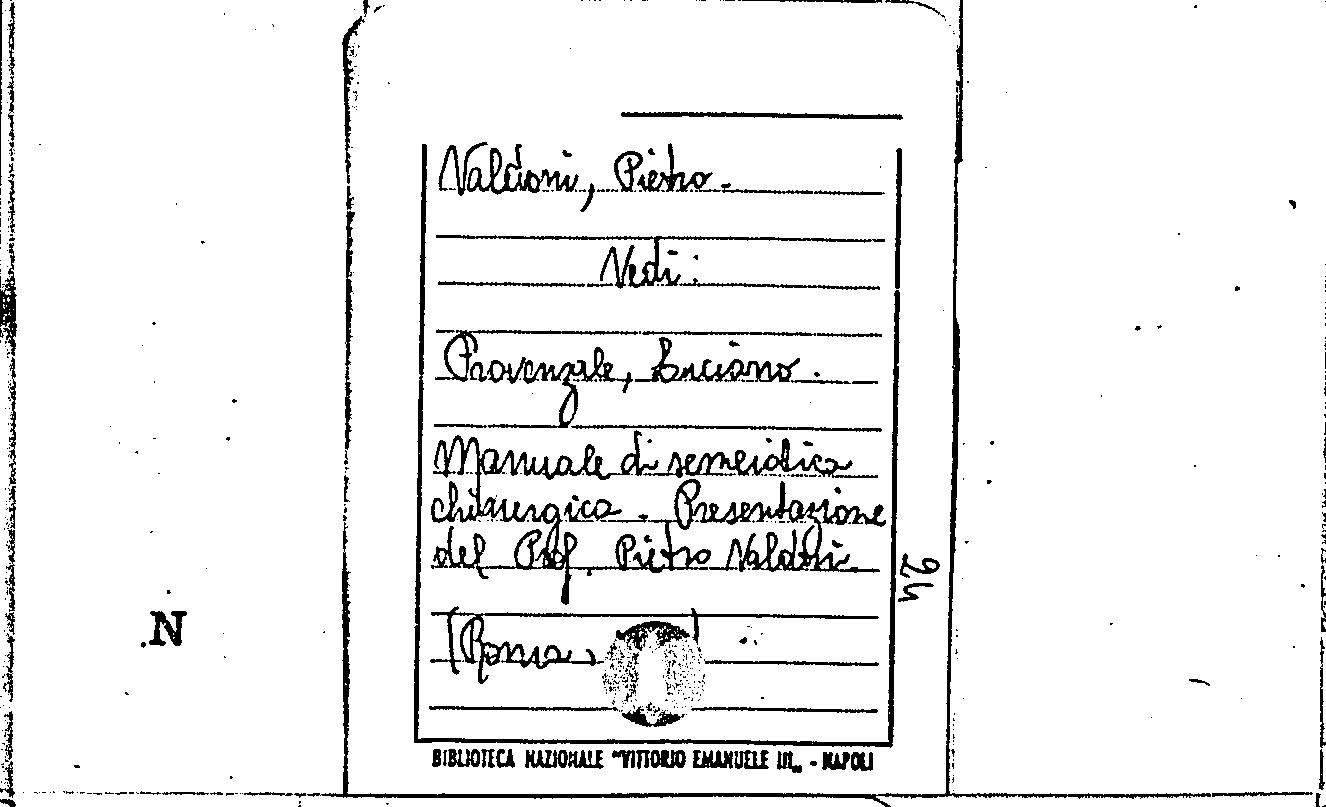 Valdoni, Pietro.
Vedi:
Provenzale, Luciano.
Manuale di semeiotica
chirurgica. Presentazione
del Prof. Pietro Valdoni.
(Roma, )
24
N
BIBLIOTECA NAZIONALE "VITTORIO EMANUELE III„ - NAPOLI